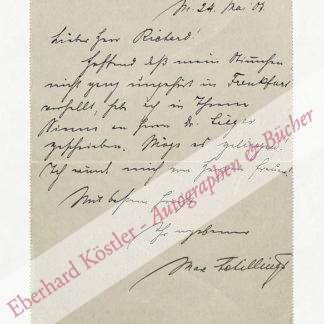 M. 24. Mai 07.
Lieber Herr Richard!
Hoffend daß mein Stimmchen
nicht ganz ungehört in Frankfurt
verhallt, habe ich in Ihrem
Sinne an Herrn Dr.
geschrieben. Mög es gelingen!
Ich würde mich von Herzen freuen!
Mit besten
Ihr ergebener
Max Schillings
Eberhard Köstler - Autographen & Bücher